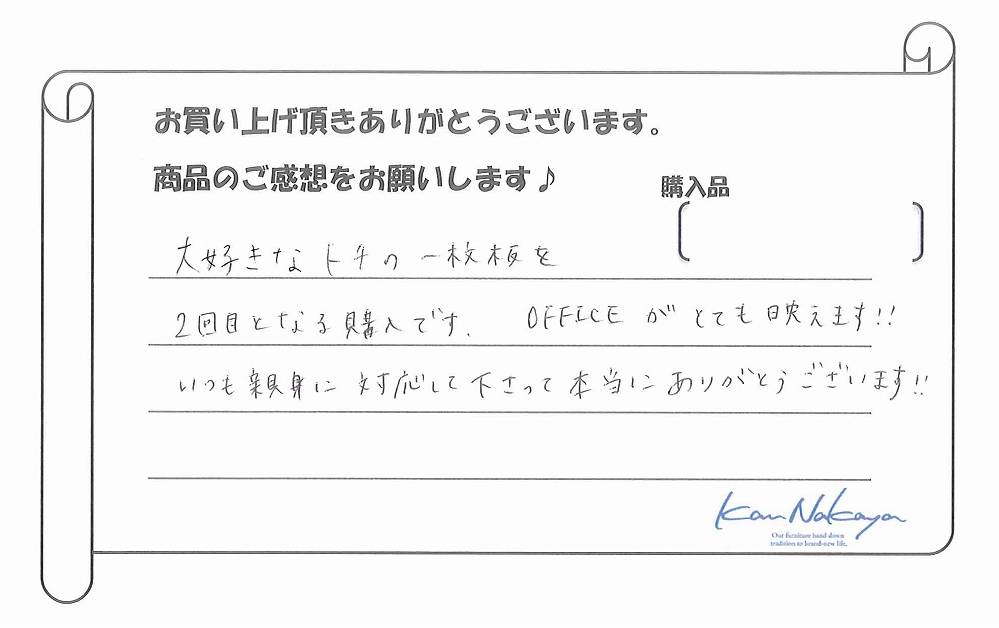 お買い上げ頂きありがとうございます。
商品のご感想をお願いします♪
購入品
大好きなトチの一枚板を
2回目となる購入です. OFFICEがとても映えます!!
いつも親身に対応して下さって本当にありがとうございます!!
Kan Nakaya
Our furniture hand down
tradition to brand-new life.